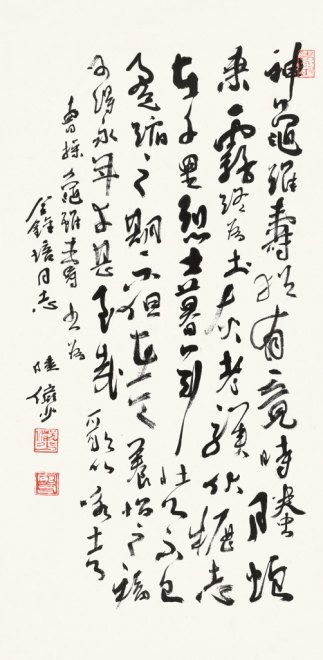 神龜雖壽猶有竟時騰蛇
乘霧終為土灰老驥伏櫪志
在千里烈士暮年壯心不已
盈縮之期不但在天養怡之福
可得永年幸甚至哉歌以詠志
曹操龜雖壽書為
培同志
陸儼少